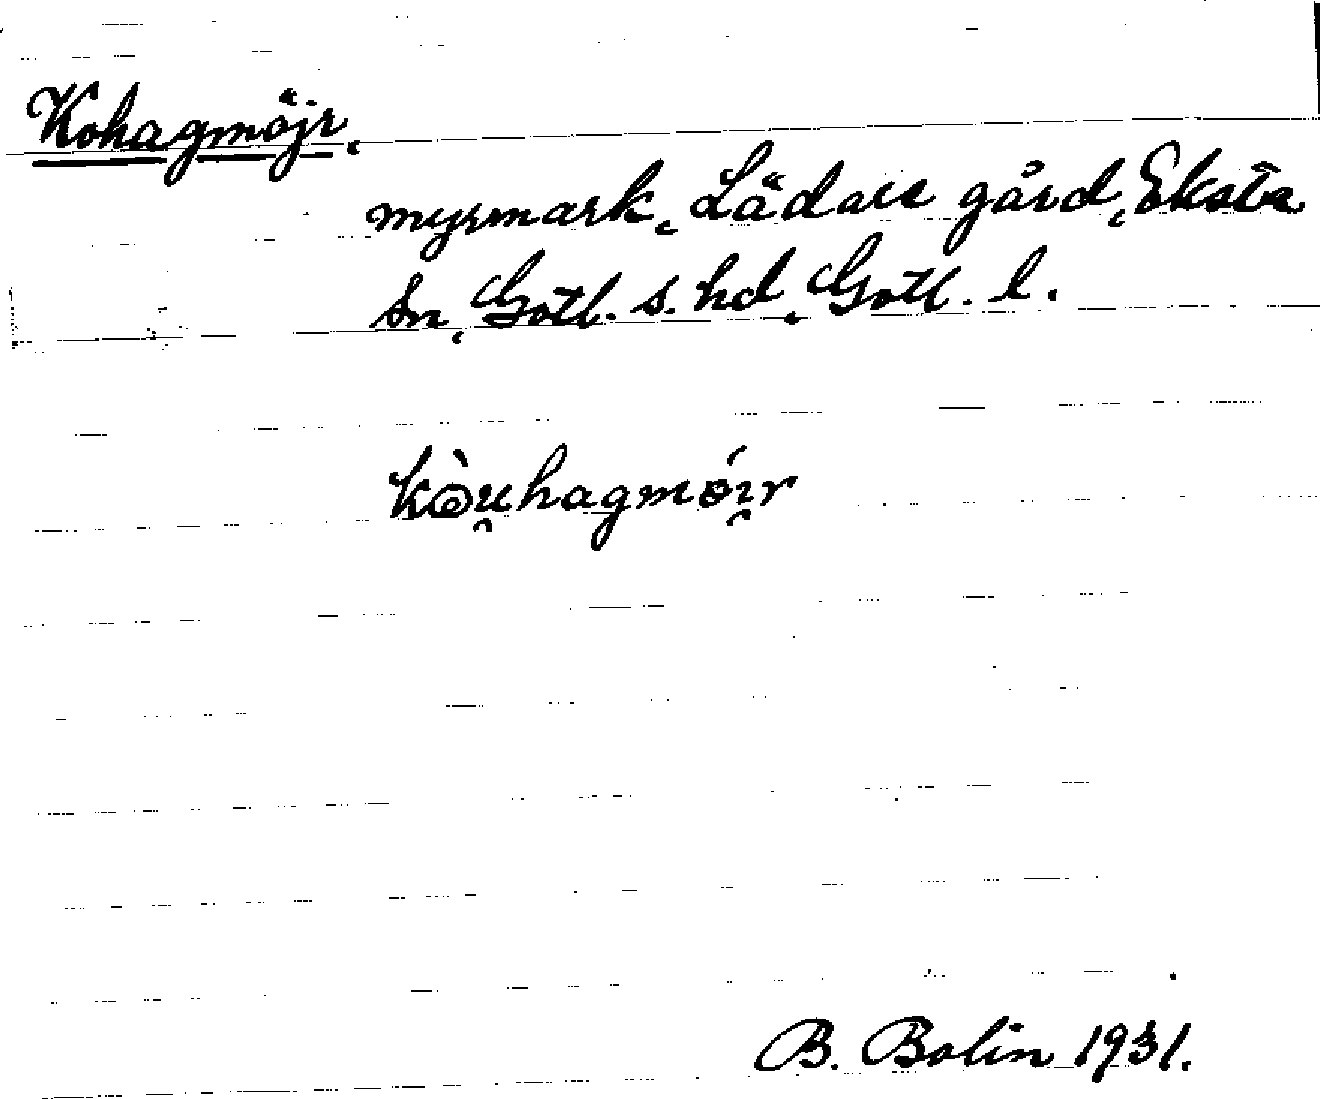 Kohagmöjr,
myrmark, Lädare gård, Eksta
sn, Gotl. s. hd, Gotl. l.
kòu̯hagmói̯r
B. Bolin 1931.